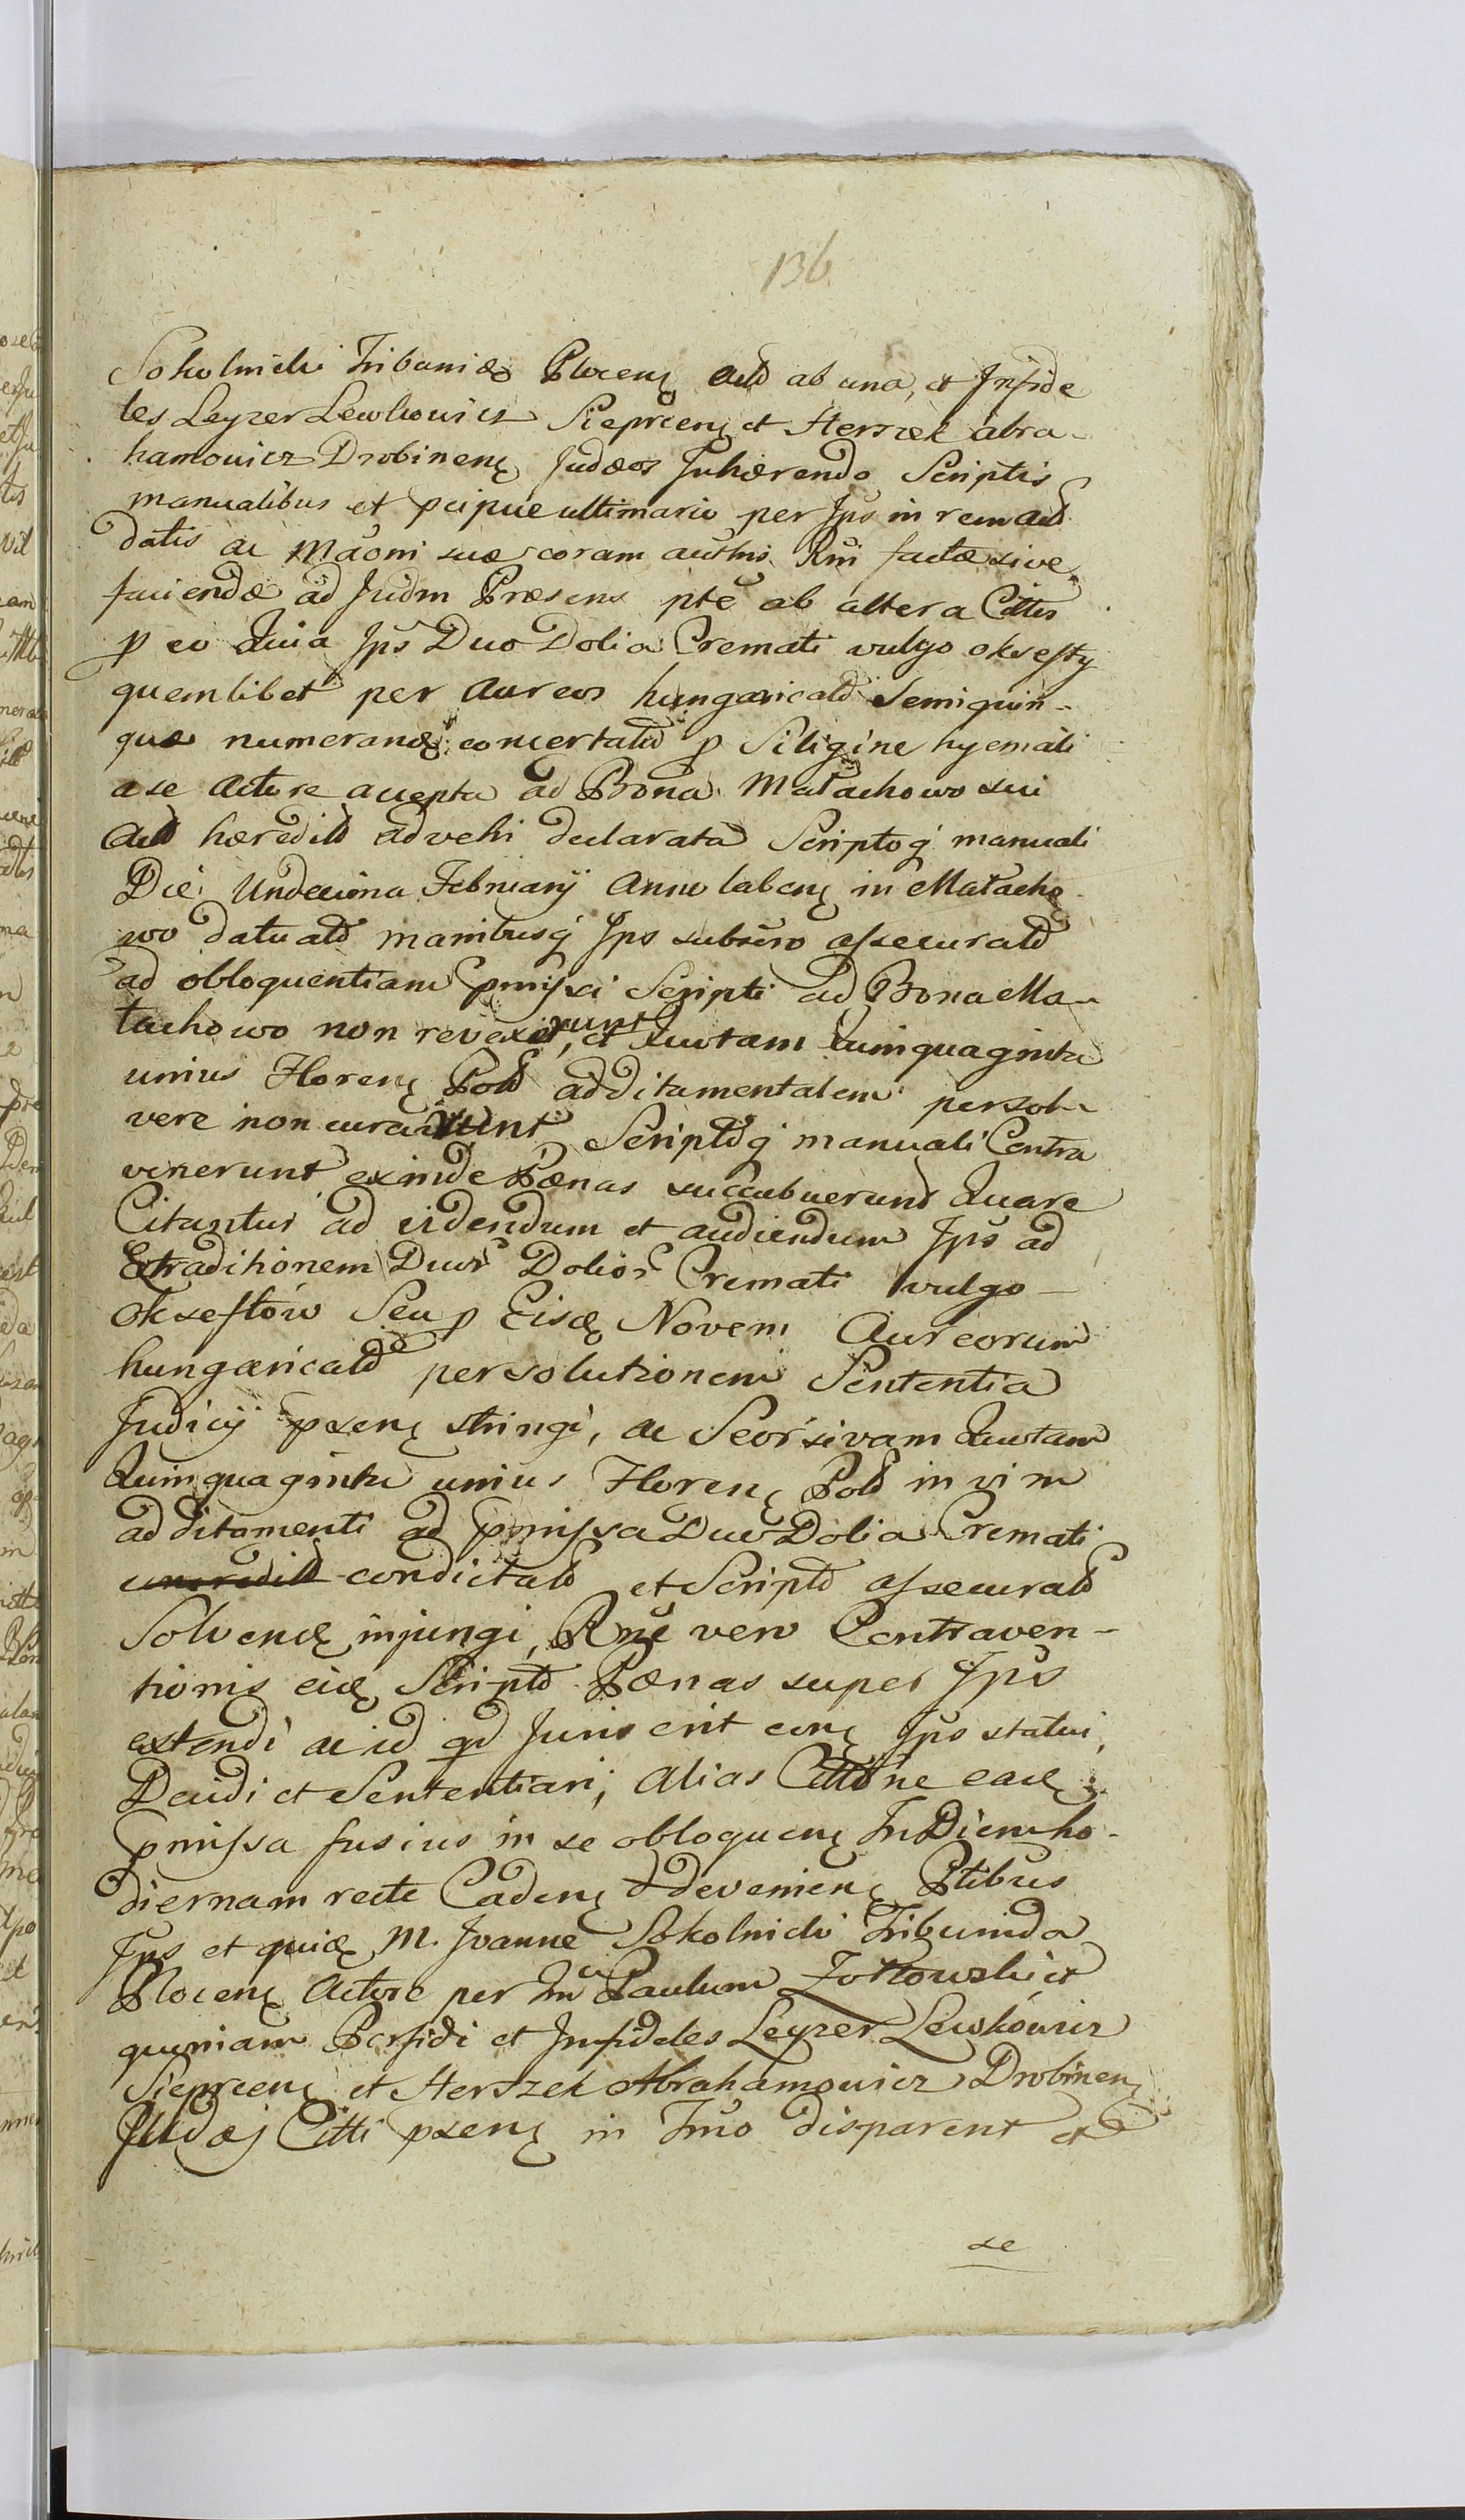 136
Sokolnicki Tribunidæ Plocenʒ Actõ ab una, et Infide
les Leyzer Lewkowicz Sieprcenʒ et Herszek abra-
hamowicz Drobinenʒ Judæos Inhærendo Scriptis
manualibus et pcipue ultimario per Ips in rem Actõ
datis ac Mãoni suæ coram authis Rni factæ sive
faciendæ ad Judm Præsens pte ab altera Cittis
p eo Quia Ips Duo Dolia Cremati vulgo oksefty
quemlibet per Aureos hungaricalẽ Semiquin-
que numerandʒ concertatũ p Siligine hyemali
a se Actore accepta ad Bona Małachowo sui
Actõ hæreditõ advehi declarata Scriptoq manuali
Die Undecima Februarij Anno labenʒ in Małacho
wo datu atõ manibusq Ips subscro assecuratõ
ad obloquentiam pmissi Scripti ad Bona Ma-
łachowo non revexerunt, et Quotam Quinquaginta
unius Florenʒ Polõ additamentalem persol-
vere non curarunt Scriptõq manuali Contra
venerunt exinde Pœnas succubuerunt Quare
Citantur ad videndum et audiendum Ips ad
Extraditionem Duor Dolior Cremati vulgo
Okseftów Seu p Eisdʒ Novem Aureorum
hungaricalẽ persolutionem Sententia
Judicij psenʒ stringi, ac Seorsivam Quotam
Quinquaginta unius Florenʒ Polõ in vim
additamenti ad pmissa Duo Dolia Cremati
condictatõ et Scriptõ assecuratõ
Solvendʒ injungi, Rne vero Contraven-
tionis eidʒ Scriptõ Pœnas super Ips
extendi ac id qd Juris erit conʒ Ips statui,
Decidi et Sententiari, Alias Cittõne eadʒ
pmissa fusius in se obloquenʒ In Diem ho-
diernam recte Cadenʒ et devenienʒ Ptibus
Ips et quidʒ M. Joanne Sokolnicki Tribunida
Plocenʒ Actore per Paulum Zołtowski et
quoniam Perfidi et Infideles Leyzer Lewkowicz
Sieprcenʒ et Herszek Abrahamowicz Drobinenʒ
Judæj Citti psenʒ in Tmo disparent et
se